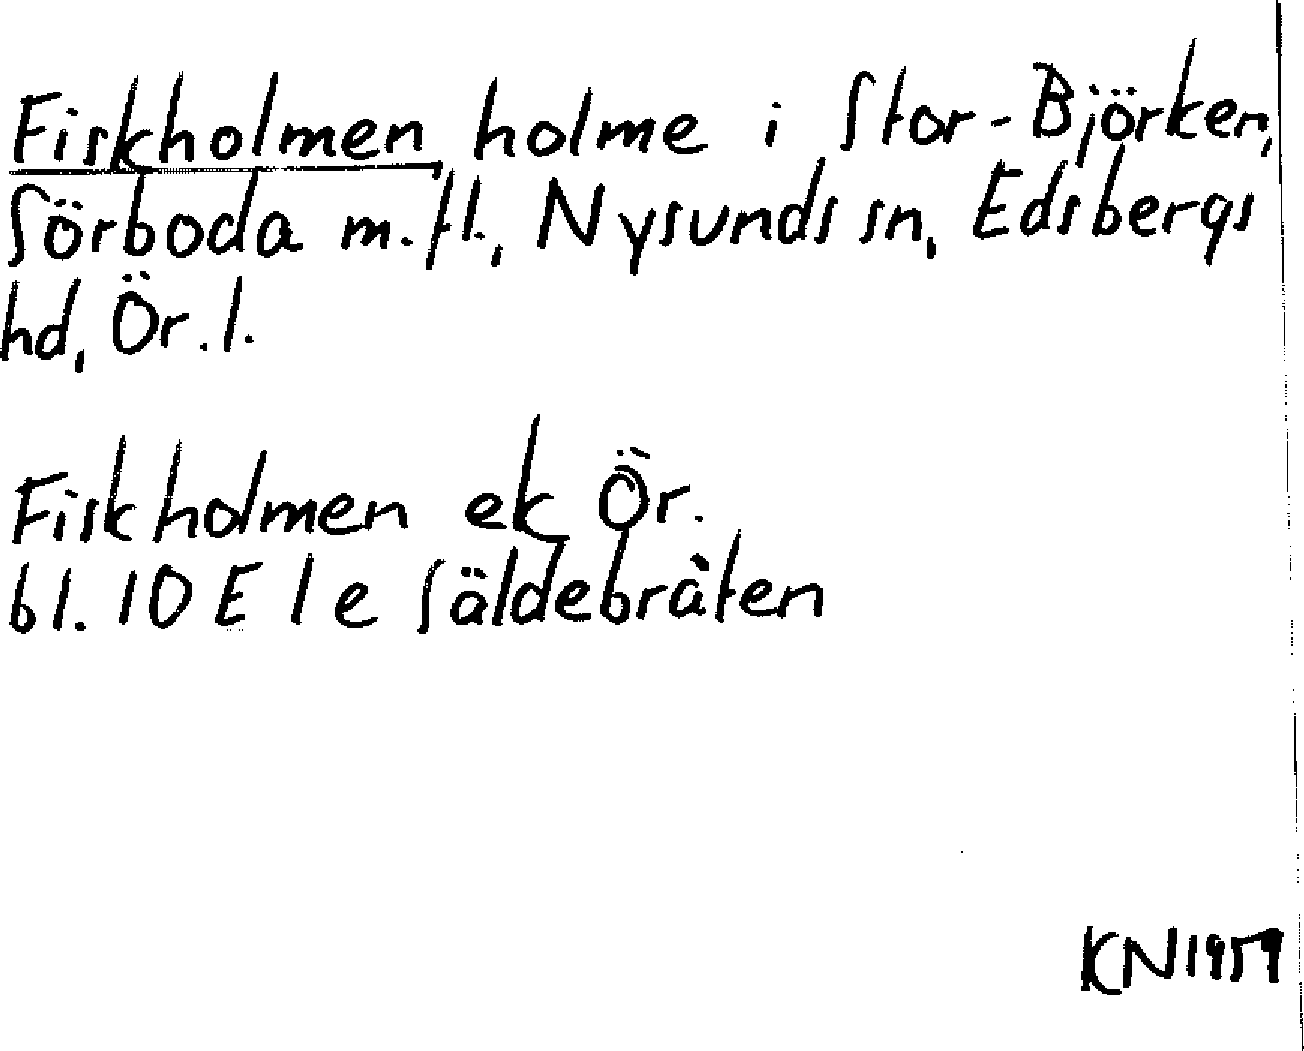 Fiskholmen holme i Stor-Björken,
Sörboda m.fl., Nysunds sn, Edsbergs
hd, Ör.l.
Fiskholmen ek Ör.
bl. 10 E 1 e Säldebråten
KN 1959